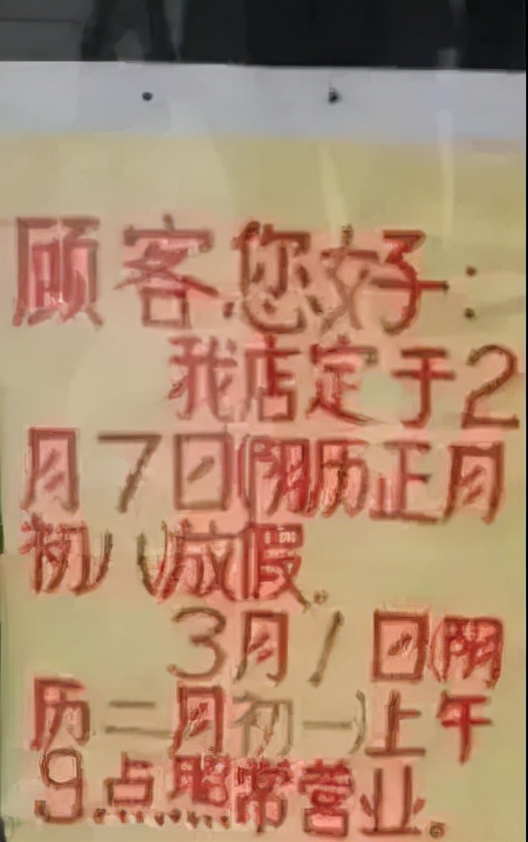 顾客您好:
我店定于2
月7日(阴历正月
初八放假。
3月1日(阴
历二月初一)上午
9点照常营业。